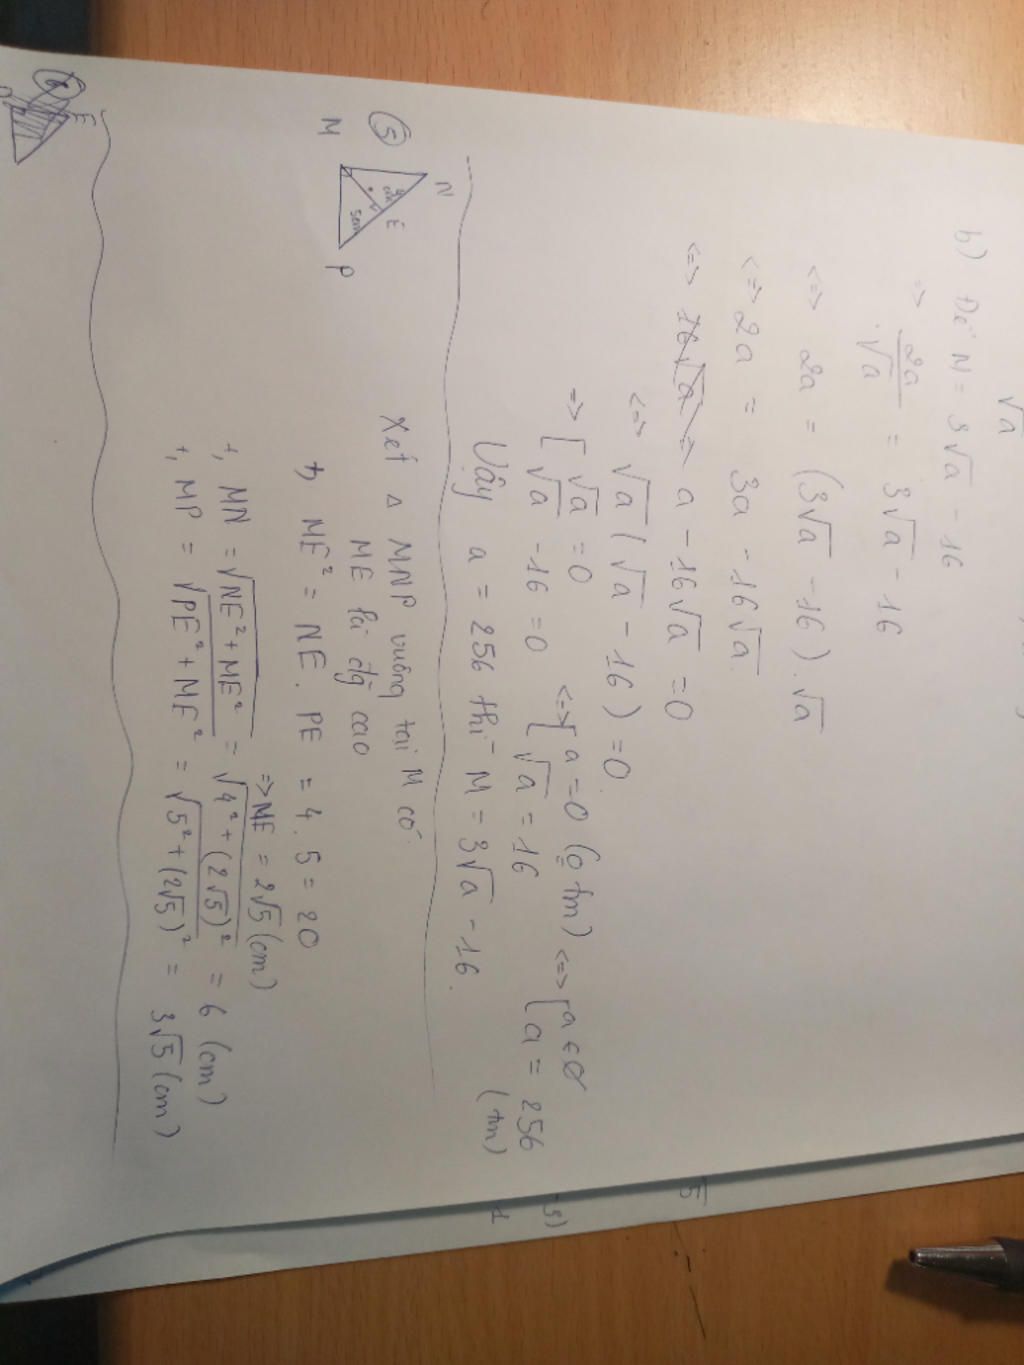 √a
b) Để M = 3√a - 16
=> 2a/√a = 3√a - 16
<=> 2a = (3√a - 16).√a
<=> 2a = 3a - 16√a
<=> 16√a = a - 16√a = 0
<=> √a(√a - 16) = 0
=> [ √a = 0 <=> [ a = 0 (0 tm) <=> [ a ∈ ∅
√a - 16 = 0 √a = 16 a = 256 (tm)
Vậy a = 256 thì M = 3√a - 16.
⑤
N
E
M
P
4cm
5cm
Xét Δ MNP vuông tại M có
ME là đg cao
+, ME² = NE . PE = 4 . 5 = 20
=> ME = 2√5 (cm)
+, MN = √NE² + ME² = √4² + (2√5)² = 6 (cm)
+, MP = √PE² + ME² = √5² + (2√5)² = 3√5 (cm)
⑥
E
5
-9)
1